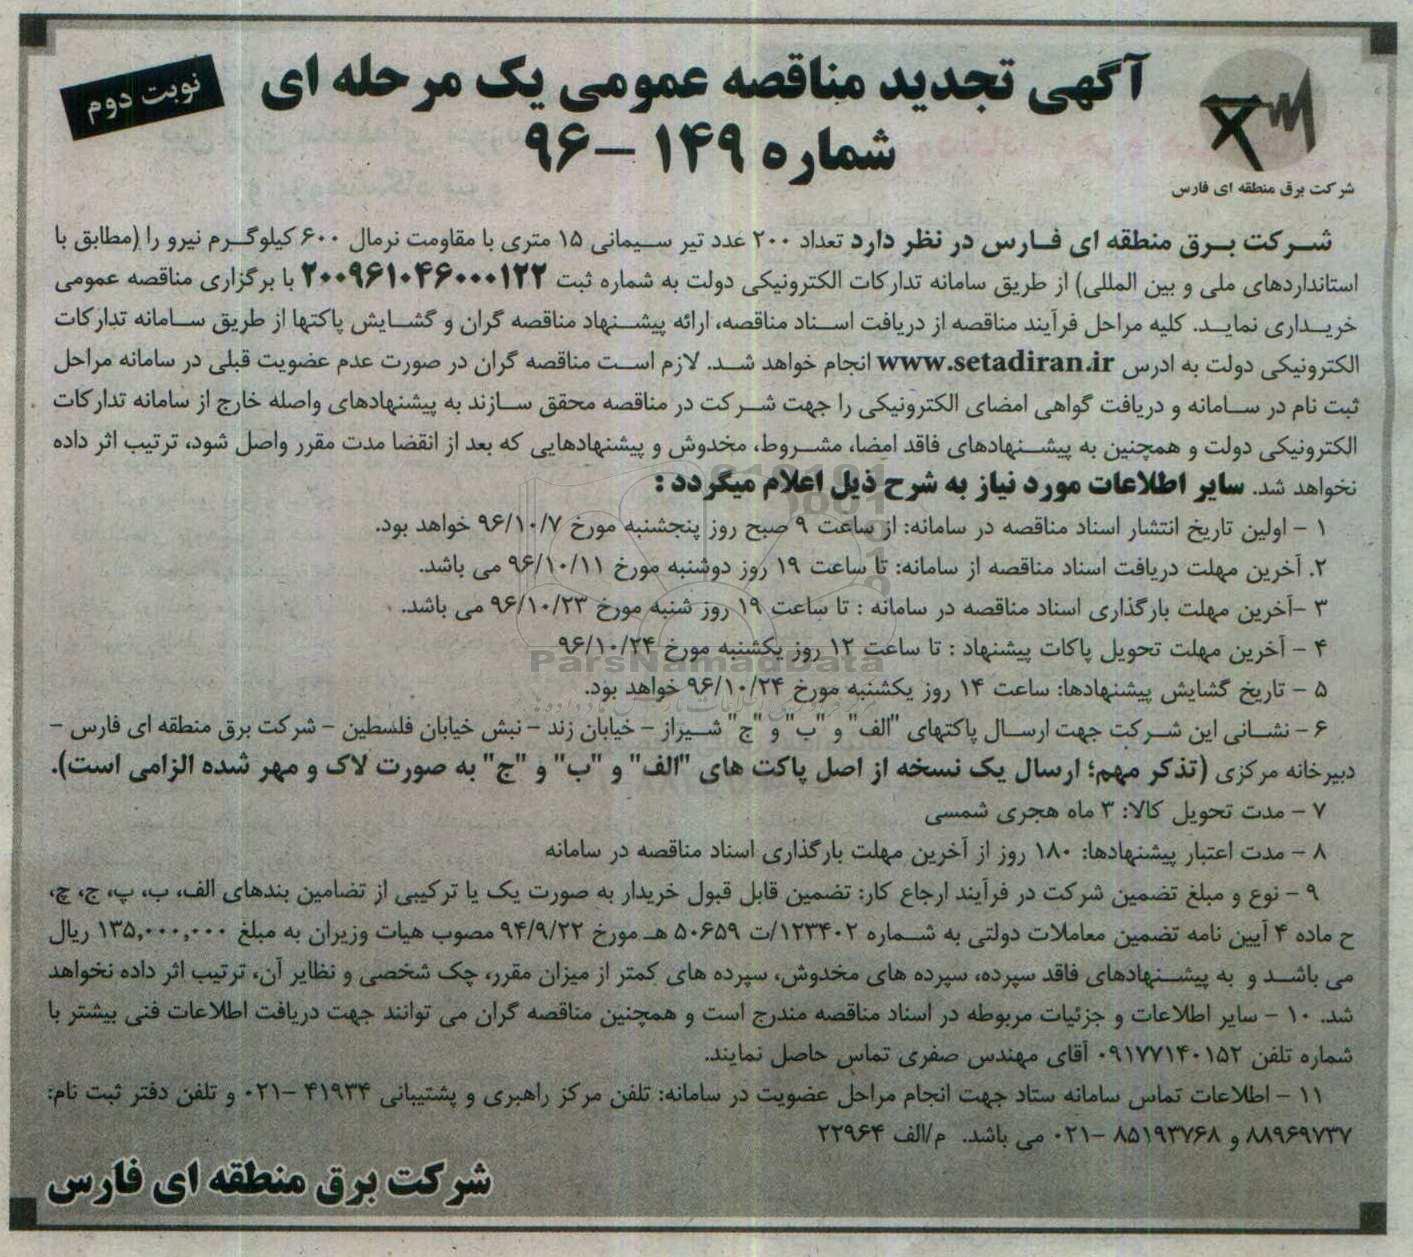 آگهی تجدید مناقصه عمومی یک مرحله ای
نوبت دوم
شماره ۱۴۹ – ۹۶
شرکت برق منطقه ای فارس
شرکت برق منطقه ای فارس در نظر دارد تعداد ۲۰۰ عدد تیر سیمانی ۱۵ متری با مقاومت نرمال ۶۰۰ کیلوگرم نیرو را (مطابق با
استانداردهای ملی و بین المللی) از طریق سامانه تدارکات الکترونیکی دولت به شماره ثبت ۲۰۰۹۶۱۰۴۶۰۰۰۱۲۲ با برگزاری مناقصه عمومی
خریداری نماید. کلیه مراحل فرآیند مناقصه از دریافت اسناد مناقصه، ارائه پیشنهاد مناقصه گران و گشایش پاکتها از طریق سامانه تدارکات
الکترونیکی دولت به ادرس www.setadiran.ir انجام خواهد شد. لازم است مناقصه گران در صورت عدم عضویت قبلی در سامانه مراحل
ثبت نام در سامانه و دریافت گواهی امضای الکترونیکی را جهت شرکت در مناقصه محقق سازند به پیشنهادهای واصله خارج از سامانه تدارکات
الکترونیکی دولت و همچنین به پیشنهادهای فاقد امضا، مشروط، مخدوش و پیشنهادهایی که بعد از انقضا مدت مقرر واصل شود، ترتیب اثر داده
نخواهد شد. سایر اطلاعات مورد نیاز به شرح ذیل اعلام میگردد :
۱ – اولین تاریخ انتشار اسناد مناقصه در سامانه: از ساعت ۹ صبح روز پنجشنبه مورخ ۹۶/۱۰/۷ خواهد بود.
۲. آخرین مهلت دریافت اسناد مناقصه از سامانه: تا ساعت ۱۹ روز دوشنبه مورخ ۹۶/۱۰/۱۱ می باشد.
۳ –آخرین مهلت بارگذاری اسناد مناقصه در سامانه : تا ساعت ۱۹ روز شنبه مورخ ۹۶/۱۰/۲۳ می باشد.
۴ – آخرین مهلت تحویل پاکات پیشنهاد : تا ساعت ۱۲ روز یکشنبه مورخ ۹۶/۱۰/۲۴
ParsNamadData
۵ – تاریخ گشایش پیشنهادها: ساعت ۱۴ روز یکشنبه مورخ ۹۶/۱۰/۲۴ خواهد بود.
۶ – نشانی این شرکت جهت ارسال پاکتهای "الف" و "ب" و "ج" شیراز – خیابان زند – نبش خیابان فلسطین – شرکت برق منطقه ای فارس –
دبیرخانه مرکزی (تذکر مهم؛ ارسال یک نسخه از اصل پاکت های "الف" و "ب" و "ج" به صورت لاک و مهر شده الزامی است).
۷ – مدت تحویل کالا: ۳ ماه هجری شمسی
۸ – مدت اعتبار پیشنهادها: ۱۸۰ روز از آخرین مهلت بارگذاری اسناد مناقصه در سامانه
۹ – نوع و مبلغ تضمین شرکت در فرآیند ارجاع کار: تضمین قابل قبول خریدار به صورت یک یا ترکیبی از تضامین بندهای الف، ب، پ، ج، چ،
ح ماده ۴ آیین نامه تضمین معاملات دولتی به شماره ۱۲۳۴۰۲/ت ۵۰۶۵۹ هـ مورخ ۹۴/۹/۲۲ مصوب هیات وزیران به مبلغ ۱۳۵,۰۰۰,۰۰۰ ریال
می باشد و به پیشنهادهای فاقد سپرده، سپرده های مخدوش، سپرده های کمتر از میزان مقرر، چک شخصی و نظایر آن، ترتیب اثر داده نخواهد
شد. ۱۰ – سایر اطلاعات و جزئیات مربوطه در اسناد مناقصه مندرج است و همچنین مناقصه گران می توانند جهت دریافت اطلاعات فنی بیشتر با
شماره تلفن ۰۹۱۷۷۱۴۰۱۵۲ آقای مهندس صفری تماس حاصل نمایند.
۱۱ – اطلاعات تماس سامانه ستاد جهت انجام مراحل عضویت در سامانه: تلفن مرکز راهبری و پشتیبانی ۴۱۹۳۴ –۰۲۱ و تلفن دفتر ثبت نام:
۸۸۹۶۹۷۳۷ و ۸۵۱۹۳۷۶۸ –۰۲۱ می باشد. م/الف ۲۲۹۶۴
شرکت برق منطقه ای فارس